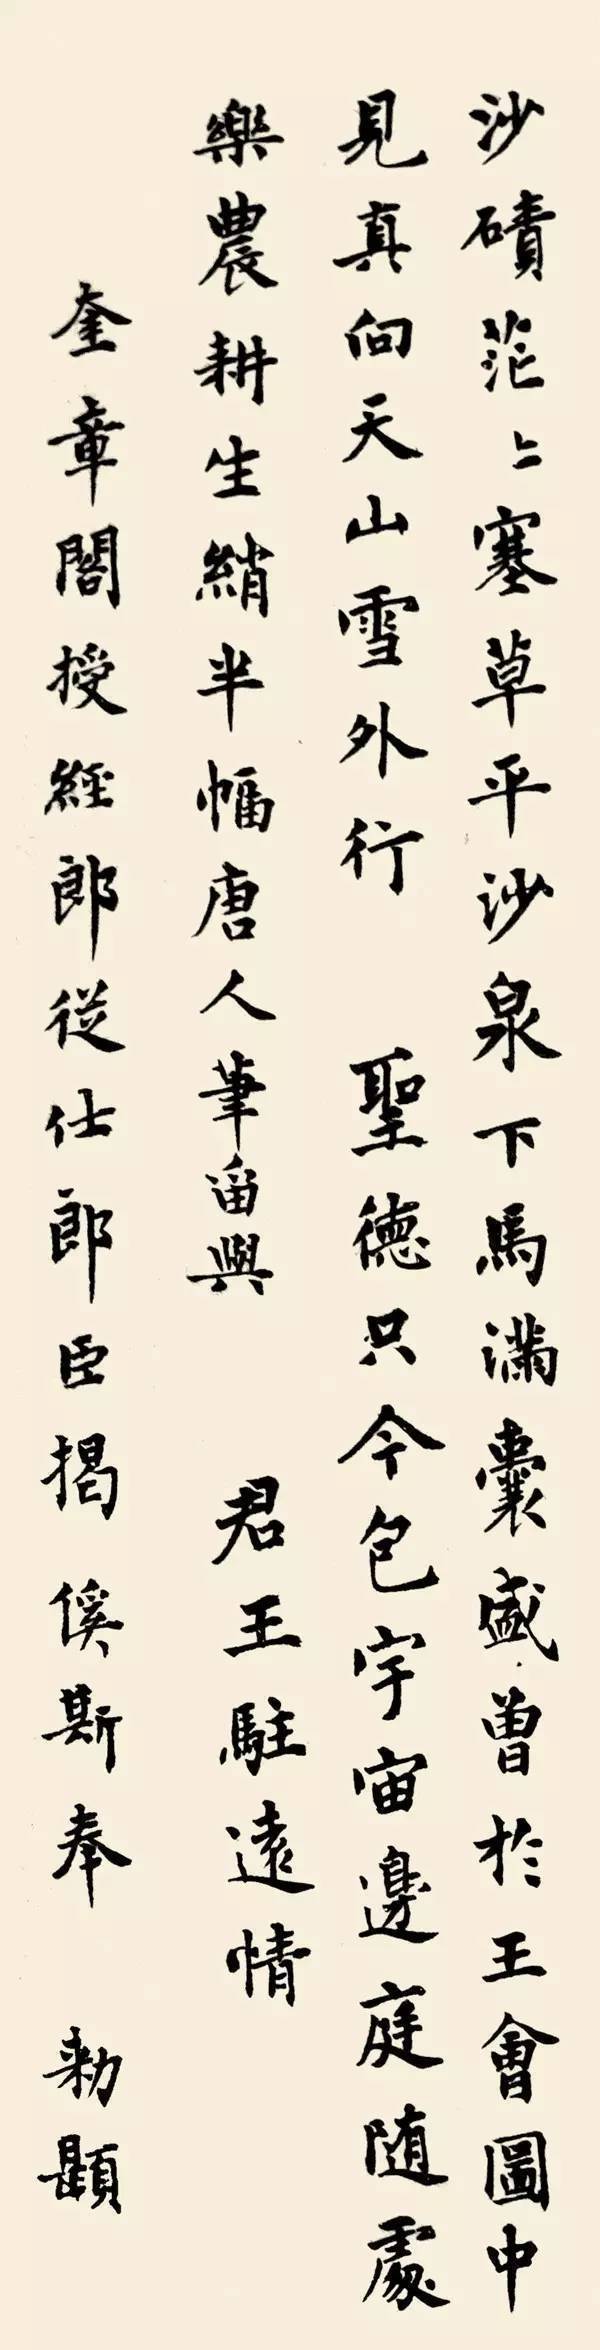 沙磧茫〻塞草平沙泉下馬滿囊盛曽於王會圖中
見真向天山雪外行　聖德只今包宇宙邊庭随處
樂農耕生綃半幅唐人筆畱與　君王駐遠情
奎章閣授經郎從仕郎臣揭傒斯奉　勑題